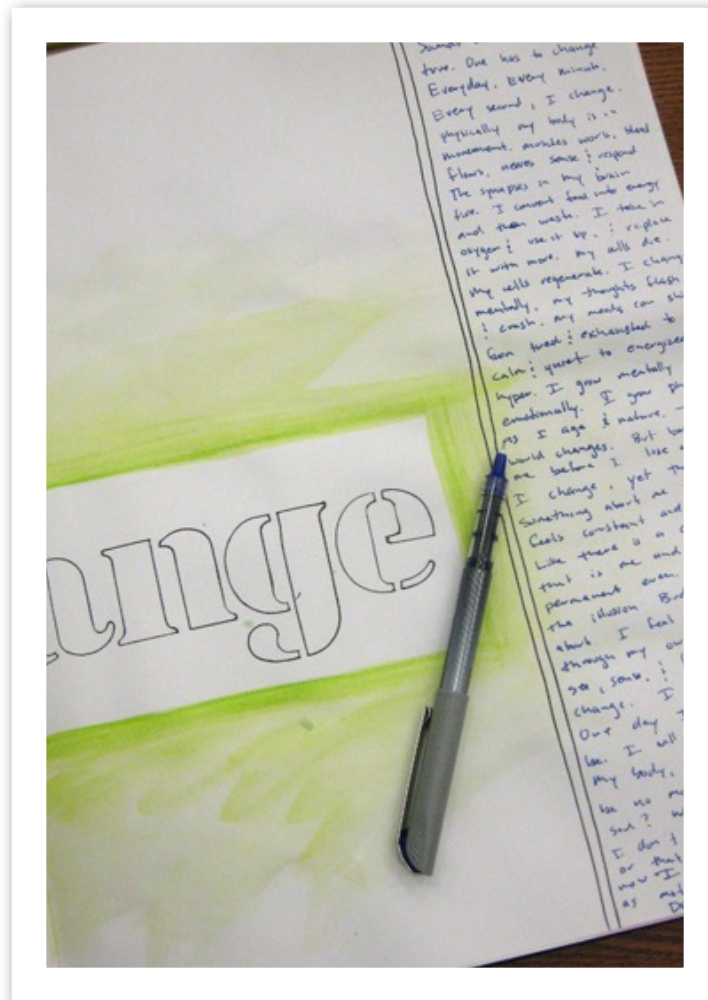 ange
true. One has to change
Everyday. Every minute.
Every second, I change.
physically my body is in
movement. muscles work, blood
flows, nerves sense & respond
The synapses in my brain
fire. I convert food into energy
and then waste. I take in
oxygen & use it up, & replace
it with more. my cells die.
My cells regenerate. I chang
mentally, my thoughts flash
& crash. my moods can shi
from tired & exhausted to
calm & quiet to energized
hyper. I grow mentally
emotionally. I grow ph
as I age & mature.
world changes. But
me before I lose
I change, yet
Something about me
feels constant and
like there is a
that is me and
permanent even.
the illusion
about I feel
through my ow
see, sense, &
change. I
One day I
be. I will
my body,
be no mo
soul? W
I don't
or that
now I
as